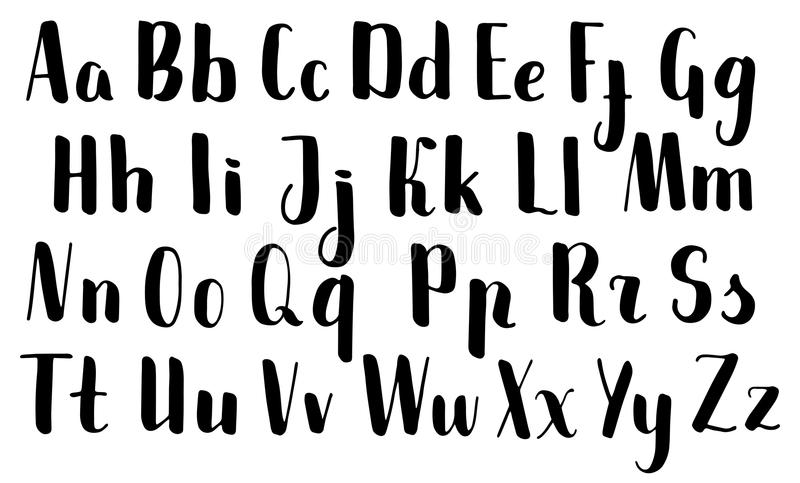 Aa Bb Cc Dd Ee Ff Gg
Hh Ii Jj Kk Ll Mm
Nn Oo Qq Pp Rr Ss
Tt Uu Vv Ww Xx Yy Zz